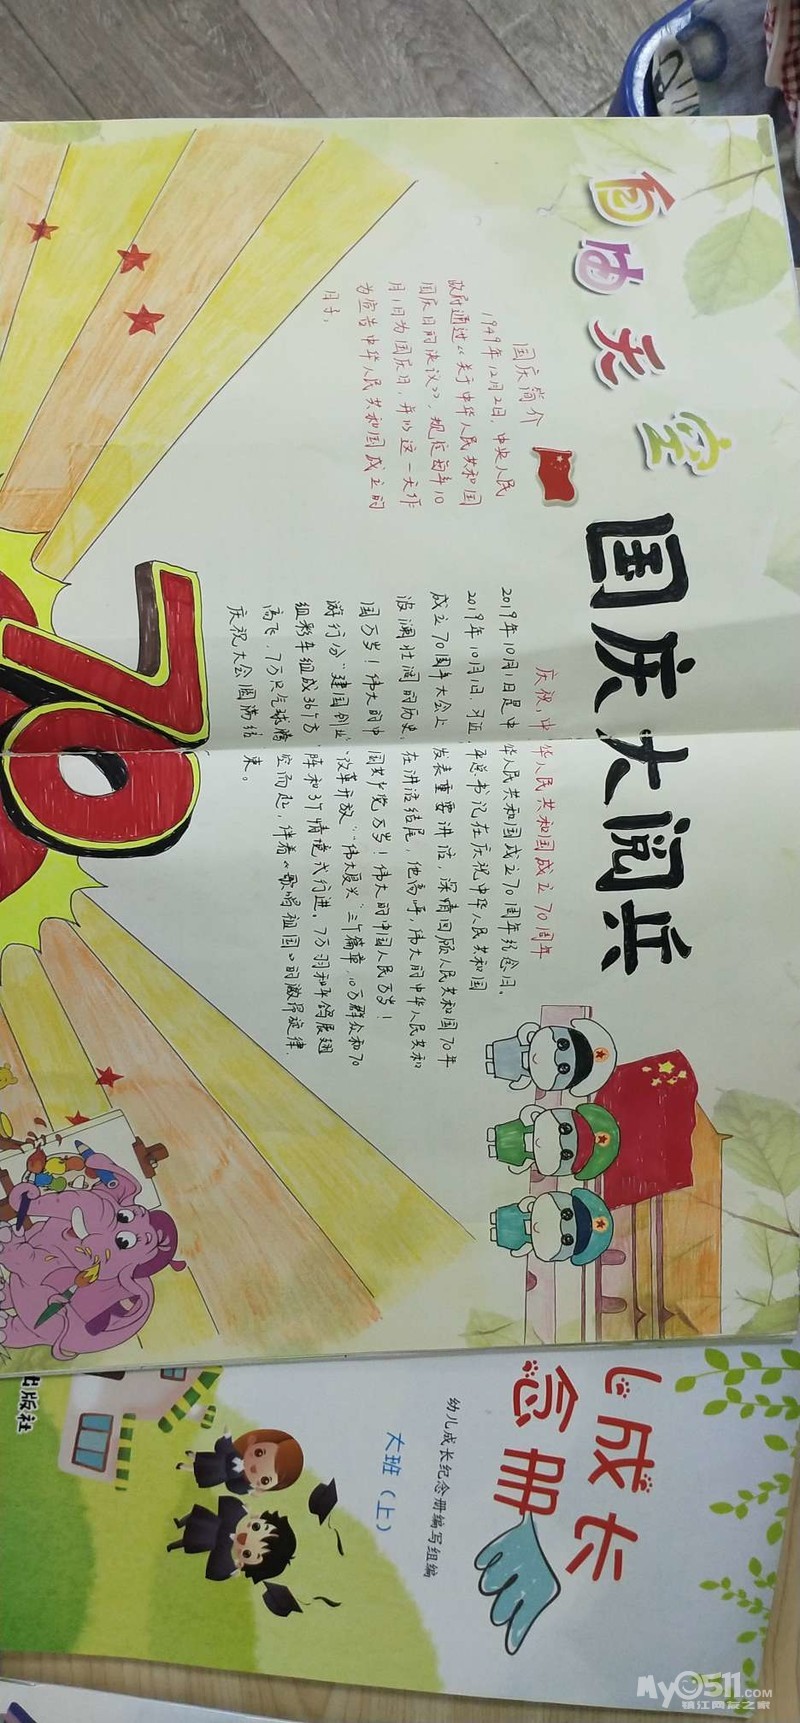 自由天空
国庆大阅兵
国庆简介
1949年12月2日，中央人民
政府通过《关于中华人民共和国
国庆日的决议》，规定每年10
月1日为国庆日，并以这一天作
为宣告中华人民共和国成立的
日子。
庆祝，中华人民共和国成立70周年
2019年10月1日是中华人民共和国成立70周年纪念日。
2019年10月1日，习近平总书记在庆祝中华人民共和国
成立70周年大会上发表重要讲话，深情回顾人民共和国70年
波澜壮阔的历史，在讲话结尾，他高呼，伟大的中华人民共和
国万岁！伟大的中国共产党万岁！伟大的中国人民万岁！
游行分"建国创业""改革开放""伟大复兴"三个篇章，10万群众和70
组彩车组成36个方阵和3个情境式行进，7万羽和平鸽展翅
高飞，7万只气球腾空而起，伴着《歌唱祖国》的激昂旋律，
庆祝大会圆满结束。
70
成长
念册
幼儿成长纪念册编写组编
大班（上）
出版社
My0511.com
镇江网友之家